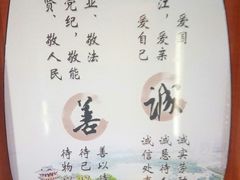 爱国
江、爱亲
爱自己
业、敬法
党纪、敬能
贤、敬人民
诚
诚实
诚恳待
诚信处
善
善以
待己
待物